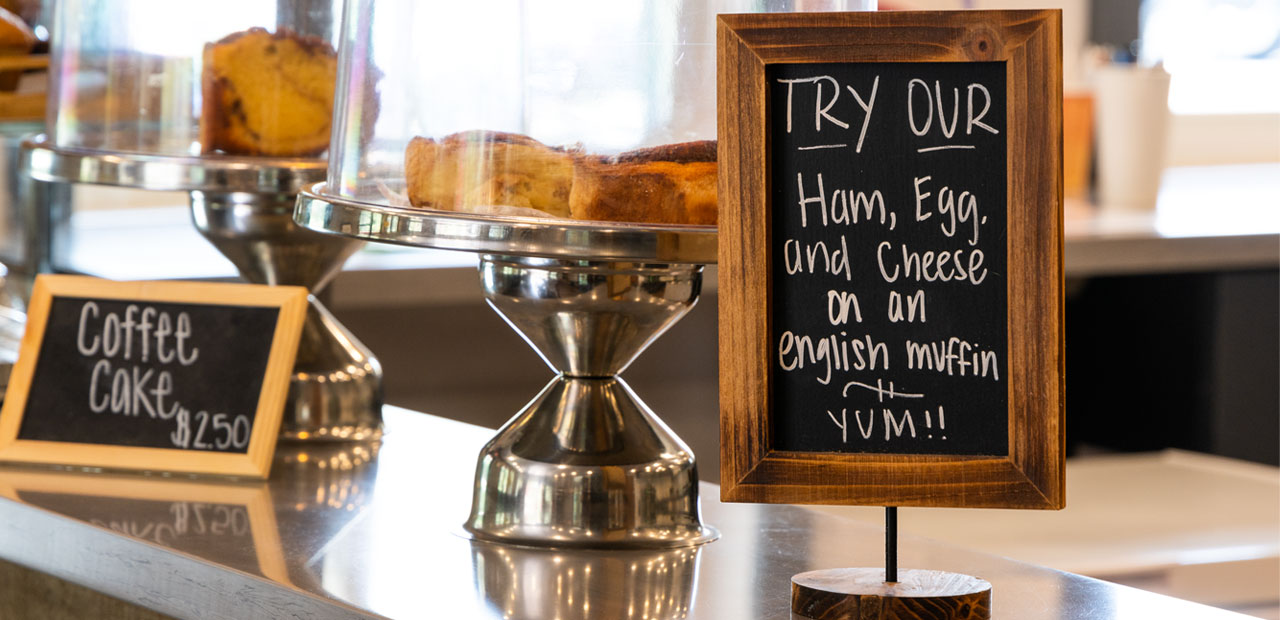 TRY OUR
Ham, Egg,
and Cheese
on an
english muffin
YUM!!
Coffee
Cake
$2.50